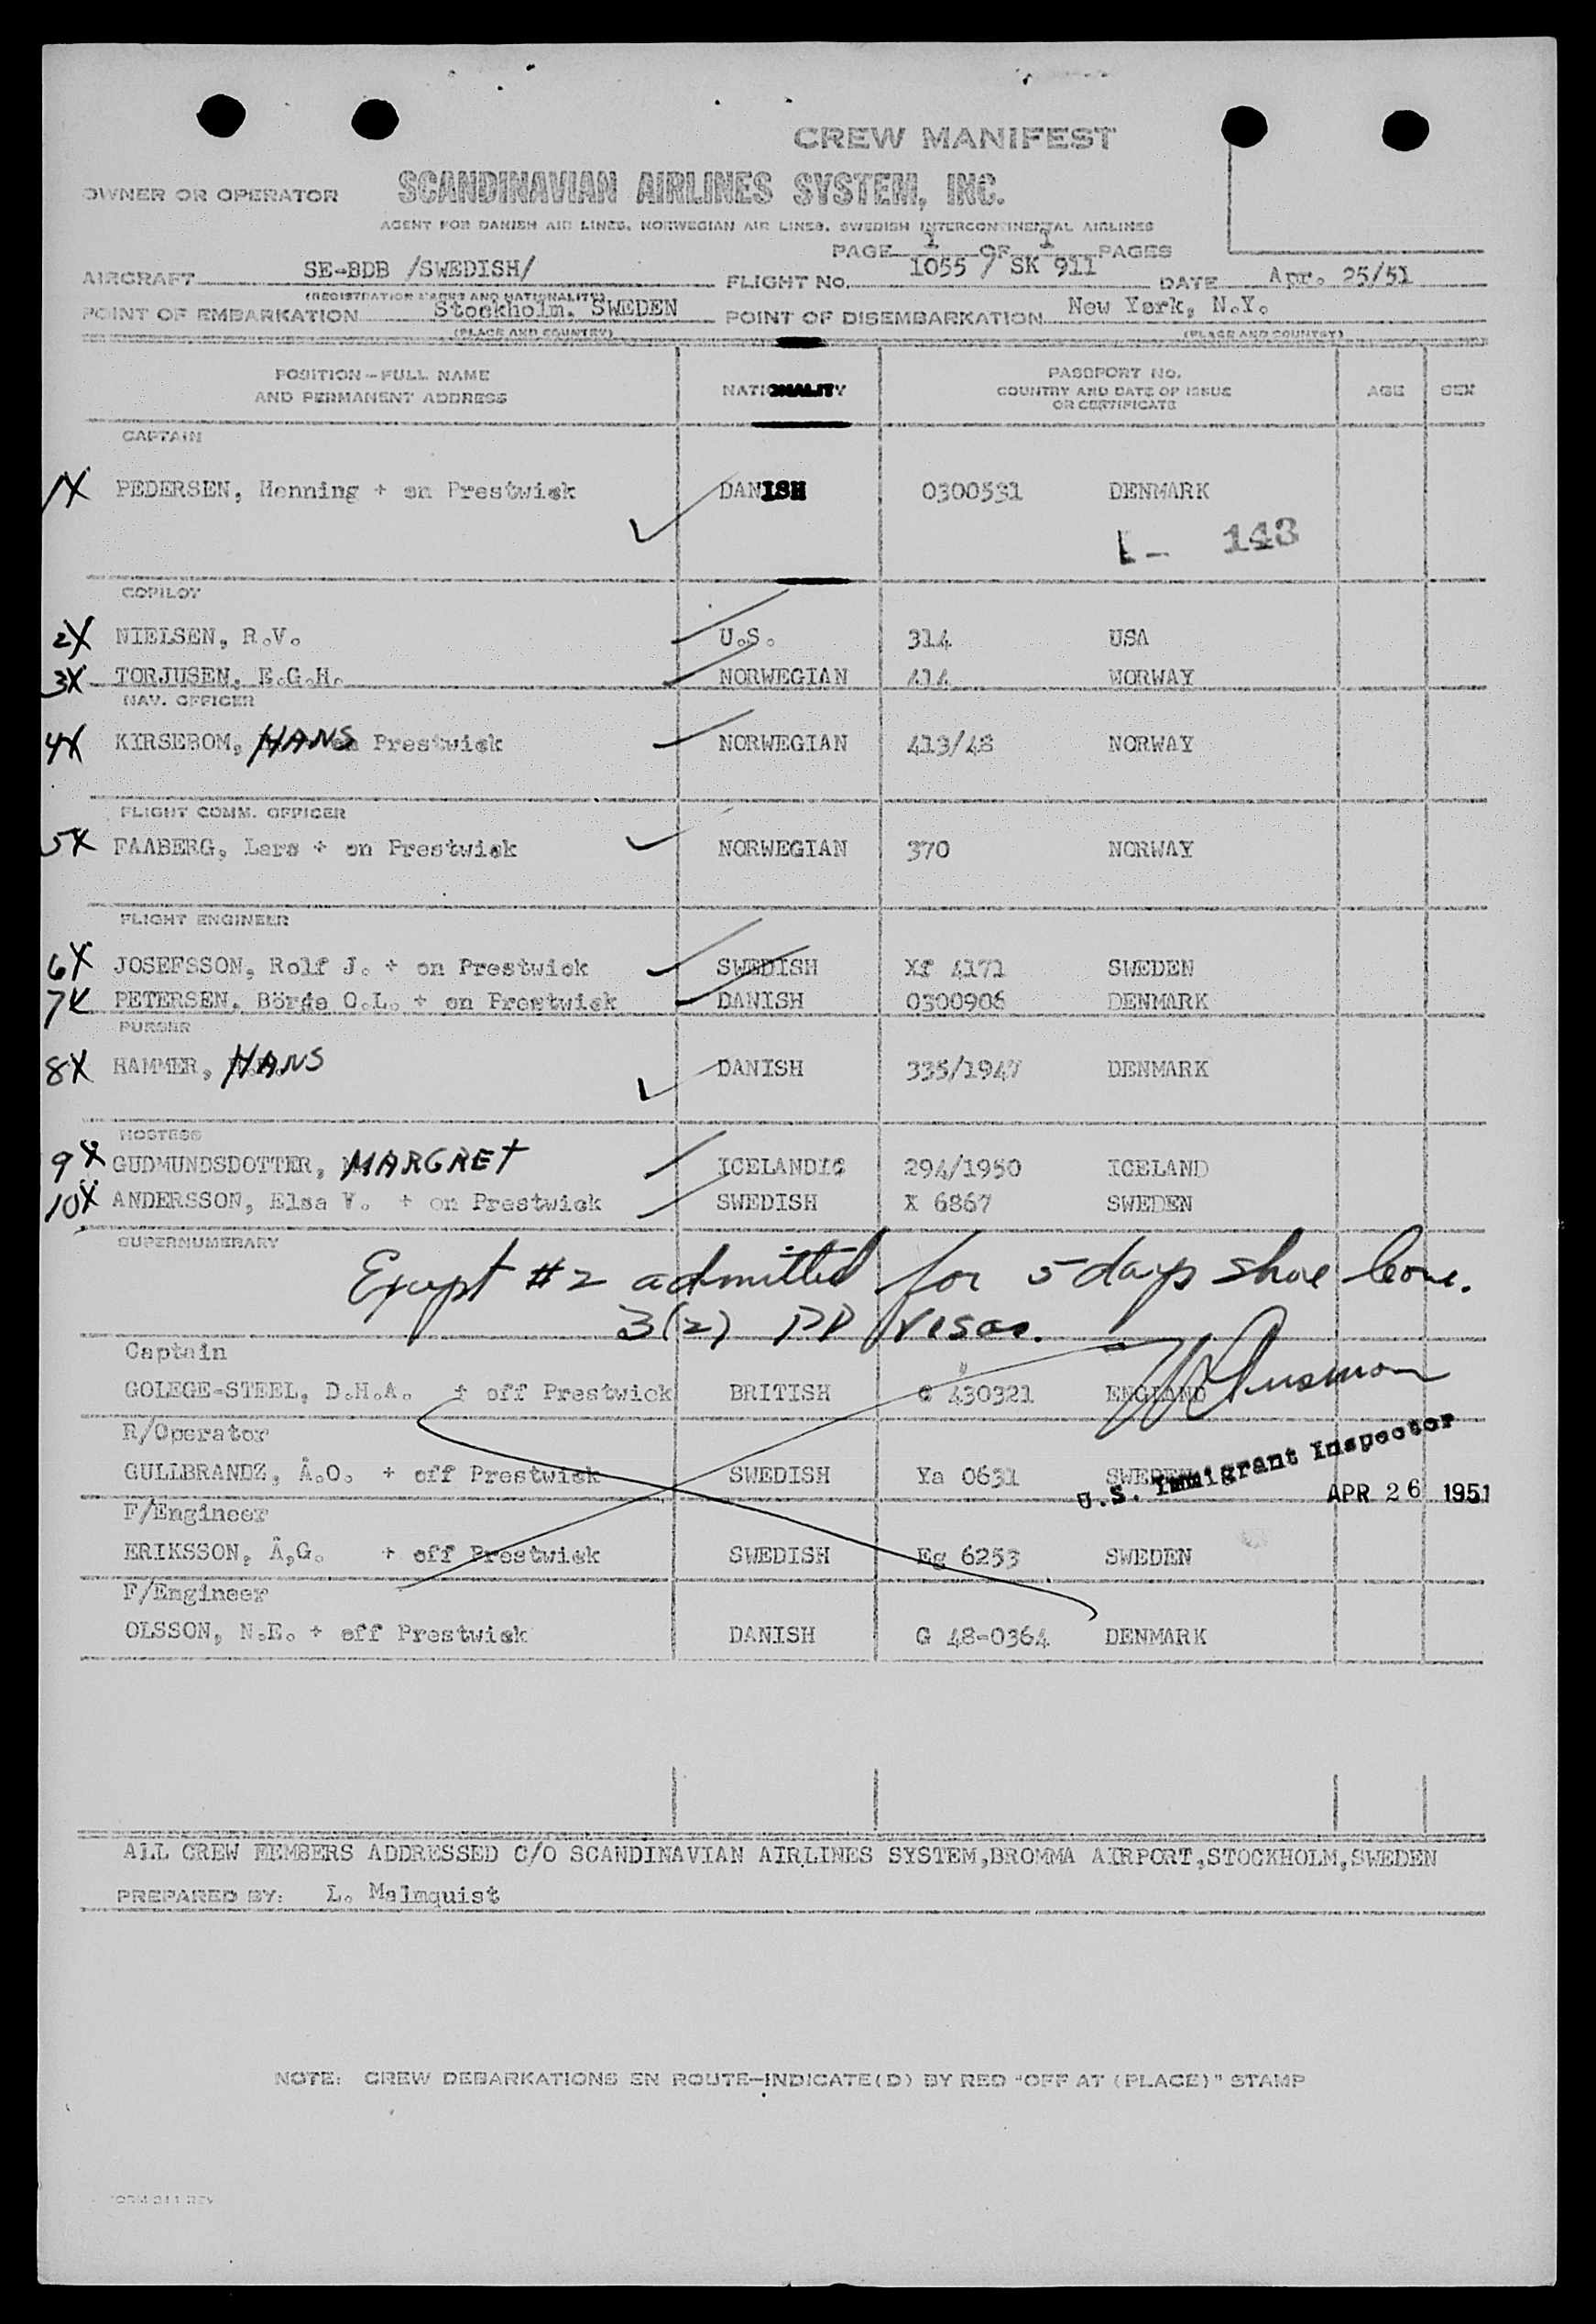 CREW MANIFEST
OWNER OR OPERATOR SCANDINAVIAN AIRLINES SYSTEM, INC.
AGENT FOR DANISH AIR LINES, NORWEGIAN AIR LINES, SWEDISH INTERCONTINENTAL AIRLINES
PAGE 1 OF 1 PAGES
AIRCRAFT SE-BDB /SWEDISH/ FLIGHT NO. 1055 / SK 911 DATE Apr. 25/51
(REGISTRATION MARKS AND NATIONALITY)
POINT OF EMBARKATION Stockholm, SWEDEN POINT OF DISEMBARKATION New York, N.Y.
(PLACE AND COUNTRY) (PLACE AND COUNTRY)
POSITION - FULL NAME AND PERMANENT ADDRESS NATIONALITY PASSPORT NO. COUNTRY AND DATE OF ISSUE OR CERTIFICATE AGE SEX
CAPTAIN
1X PEDERSEN, Henning + on Prestwick DANISH 0300531 DENMARK
1 - 143
COPILOT
2X NIELSEN, R.V. U.S. 314 USA
3X TORJUSEN, E.G.H. NORWEGIAN 414 NORWAY
NAV. OFFICER
4X KIRSEBOM, HANS on Prestwick NORWEGIAN 413/48 NORWAY
FLIGHT COMM. OFFICER
5X FAABERG, Lars + on Prestwick NORWEGIAN 370 NORWAY
FLIGHT ENGINEER
6X JOSEFSSON, Rolf J. + on Prestwick SWEDISH Xf 4171 SWEDEN
7X PETERSEN, Börge O.L. + on Prestwick DANISH 0300906 DENMARK
PURSER
8X HAMMER, HANS DANISH 335/1947 DENMARK
HOSTESS
9X GUDMUNDSDOTTER, MARGRET ICELANDIC 294/1950 ICELAND
10X ANDERSSON, Elsa V. + on Prestwick SWEDISH X 6867 SWEDEN
SUPERNUMERARY
Except #2 admitted for 5 days shore leave.
3(2) PP Visas.
Captain
GOLEGE-STEEL, D.H.A. + off Prestwick BRITISH C 430321 ENGLAND
R/Operator
GULLBRANDZ, Å.O. + off Prestwick SWEDISH Ya 0631 SWEDEN
U.S. Immigrant Inspector
APR 26 1951
F/Engineer
ERIKSSON, Å,G. + off Prestwick SWEDISH Eg 6253 SWEDEN
F/Engineer
OLSSON, N.E. + off Prestwick DANISH G 48-0364 DENMARK
ALL CREW MEMBERS ADDRESSED C/O SCANDINAVIAN AIRLINES SYSTEM,BROMMA AIRPORT,STOCKHOLM,SWEDEN
PREPARED BY: L. Malmquist
NOTE: CREW DEBARKATIONS EN ROUTE-INDICATE(D) BY RED "OFF AT (PLACE)" STAMP
FORM 311 REV